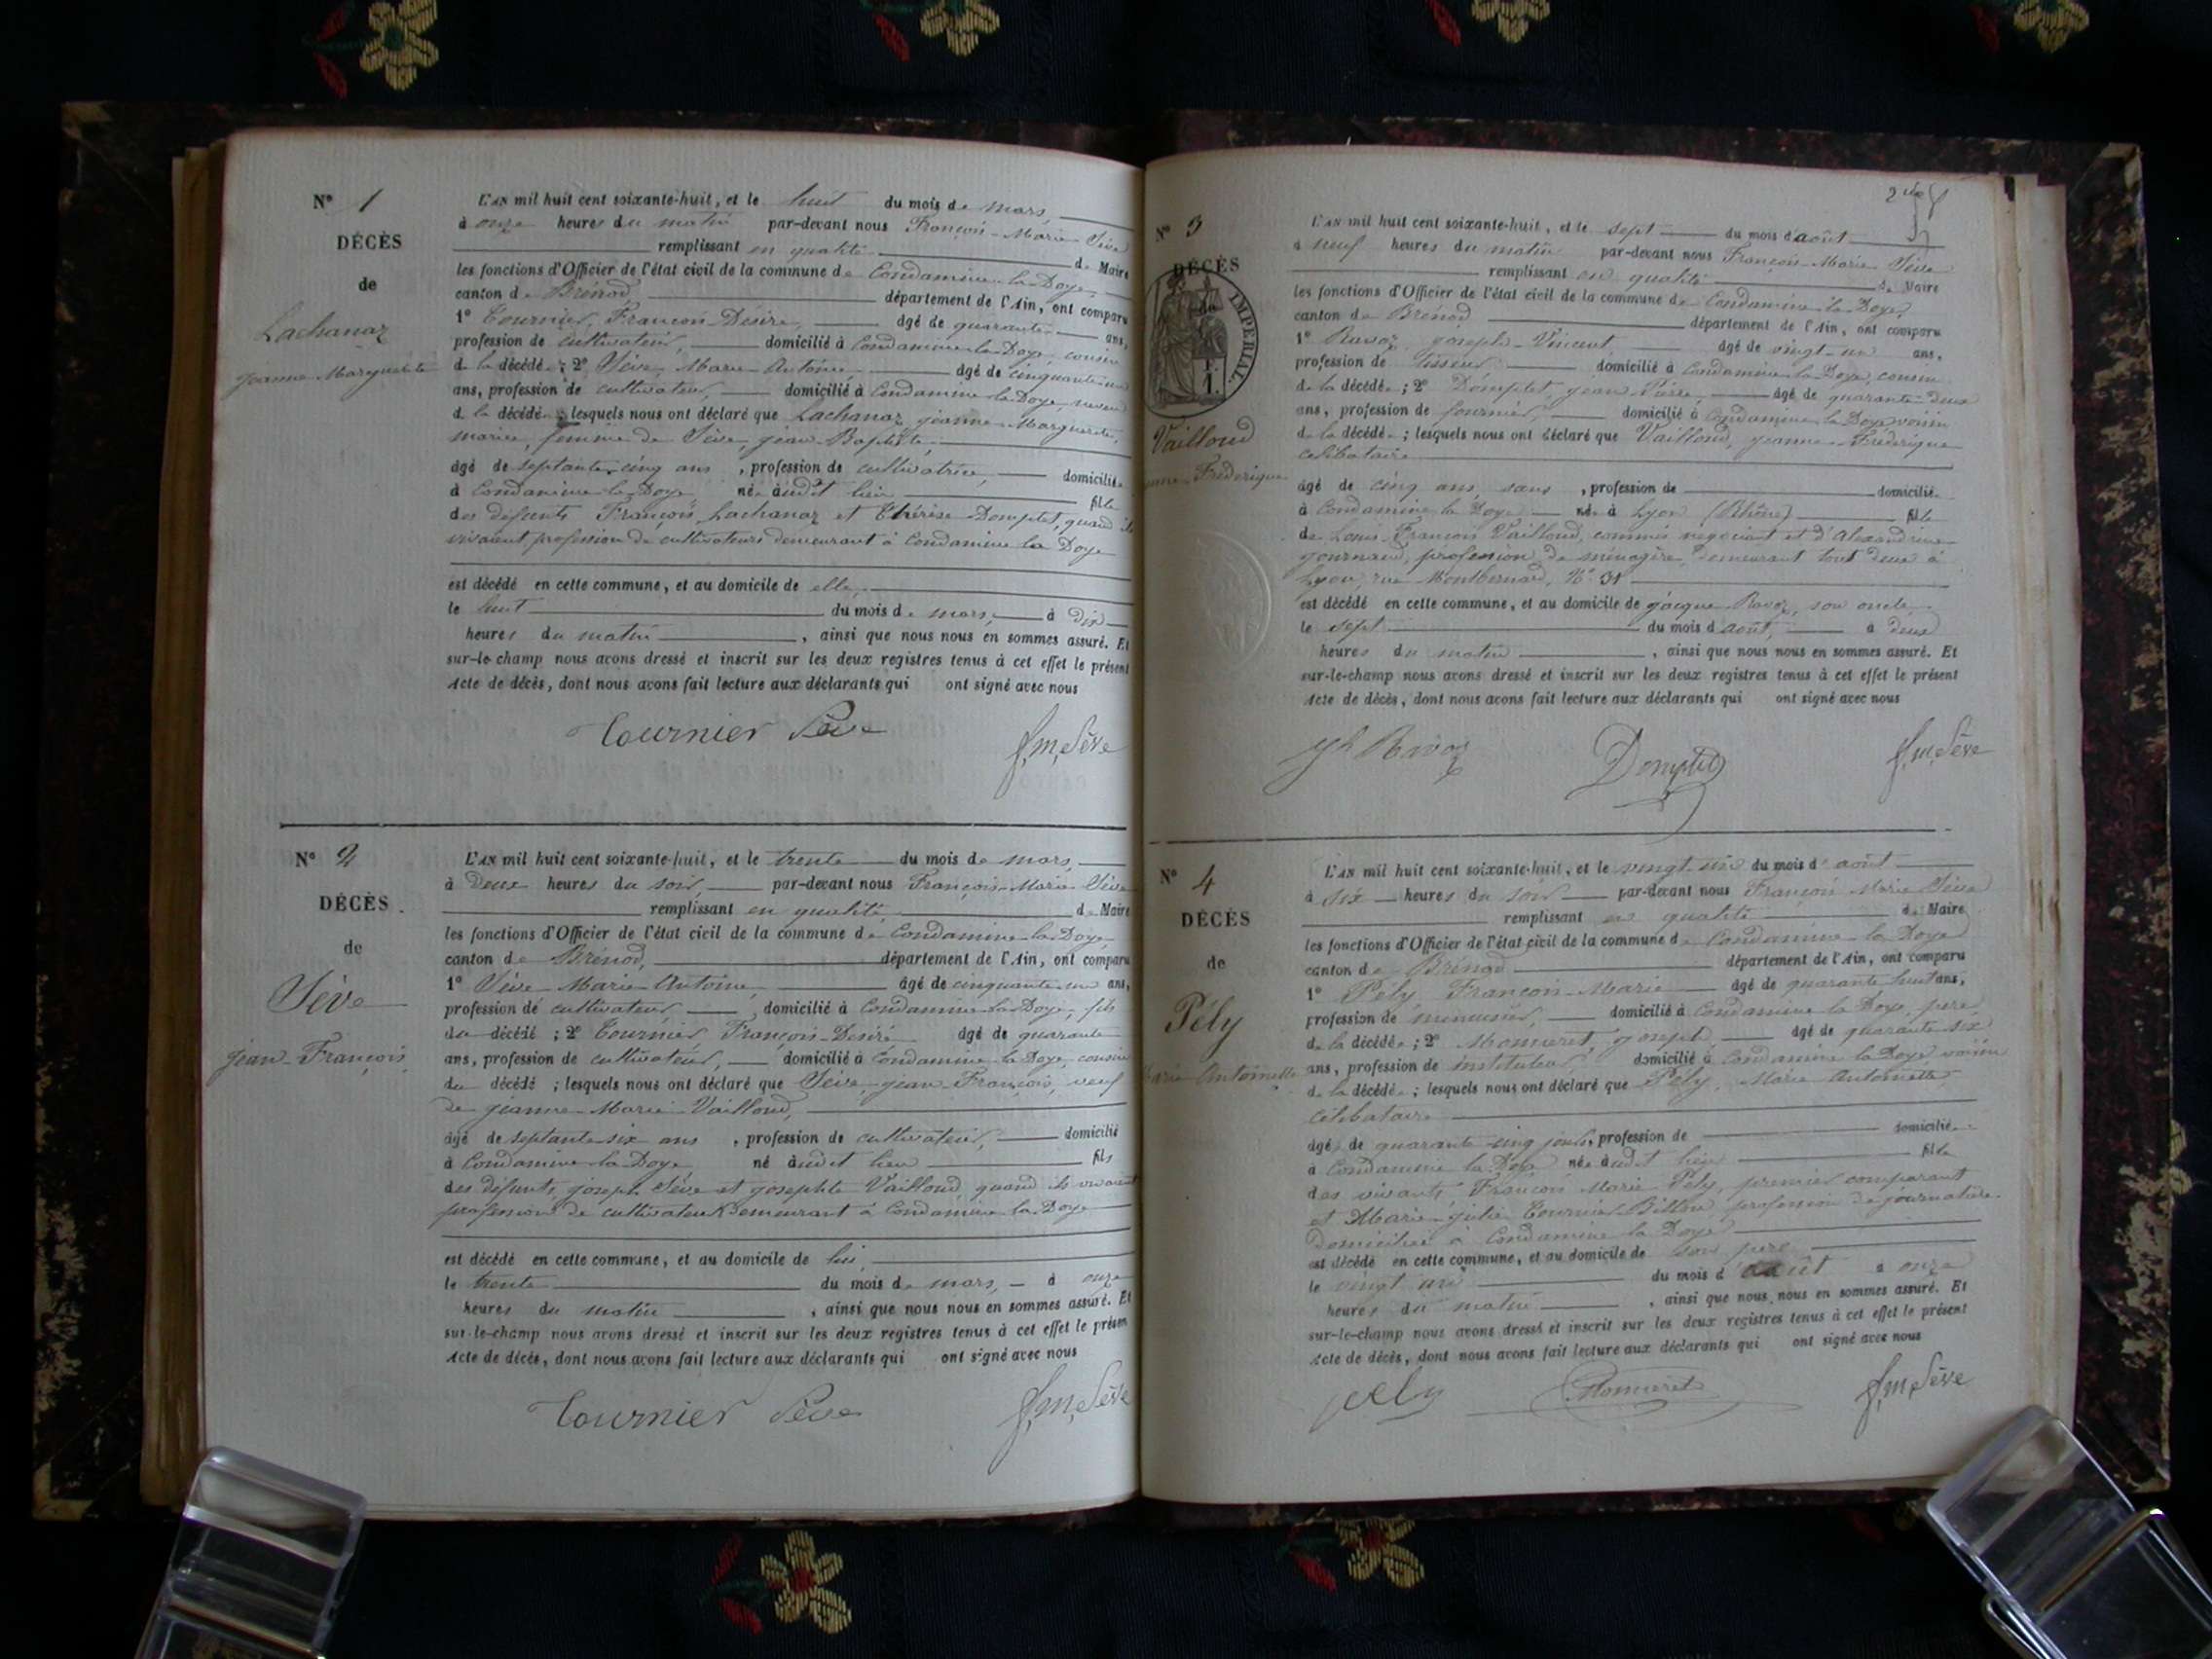 N° 1
DÉCÈS
de
Lachanaz
jeanne Marguerite
L'AN mil huit cent soixante-huit, et le huit du mois de mars,
à onze heures du matin par-devant nous François-Marie Sève
remplissant en qualité de Maire
les fonctions d'Officier de l'état civil de la commune de Condamine-la-Doye,
canton de Brénod, département de l'Ain, ont comparu
1° Tournier, François-Désiré, âgé de quarante ans,
profession de cultivateur, domicilié à Condamine-la-Doye, cousin
de la décédée; 2° Sève, Marie-Antoine âgé de cinquante-un
ans, profession de cultivateur, domicilié à Condamine la Doye, neveu
de la décédée; lesquels nous ont déclaré que Lachanaz, jeanne-Marguerite,
mariée, femme de Sève, jean-Baptiste,
âgé de septante-cinq ans, profession de cultivatrice, domiciliée
à Condamine-la-Doye née audit lieu fille
des défunts François Lachanaz et Thérèse Domptet, quand ils
vivaient profession de cultivateurs demeurant à Condamine la Doye
est décédé en cette commune, et au domicile de elle,
le huit du mois de mars, à dix
heures du matin, ainsi que nous nous en sommes assuré. Et
sur-le-champ nous avons dressé et inscrit sur les deux registres tenus à cet effet le présent
Acte de décès, dont nous avons fait lecture aux déclarants qui ont signé avec nous
Tournier Sève f.m. Sève
N° 2
DÉCÈS
de
Sève
jean-François
L'AN mil huit cent soixante-huit, et le trente du mois de mars,
à deux heures du soir, par-devant nous François-Marie Sève
remplissant en qualité de Maire
les fonctions d'Officier de l'état civil de la commune de Condamine-la-Doye,
canton de Brénod, département de l'Ain, ont comparu
1° Sève Marie-Antoine, âgé de cinquante-un ans,
profession de cultivateur, domicilié à Condamine-la-Doye, fils
du décédé; 2° Tournier François-Désiré âgé de quarante
ans, profession de cultivateur, domicilié à Condamine-la-Doye, cousin
du décédé; lesquels nous ont déclaré que Sève, jean-François, veuf
de jeanne-Marie Vailloud,
âgé de septante-six ans, profession de cultivateur, domicilié
à Condamine-la-Doye né audit lieu fils
des défunts, joseph Sève et josephte Vailloud quand ils vivaient
profession de cultivateurs demeurant à Condamine la Doye
est décédé en cette commune, et au domicile de lui,
le trente du mois de mars, à onze
heures du matin, ainsi que nous nous en sommes assuré. Et
sur-le-champ nous avons dressé et inscrit sur les deux registres tenus à cet effet le présen
Acte de décès, dont nous avons fait lecture aux déclarants qui ont signé avec nous
Tournier Sève f.m. Sève
N° 3
DÉCÈS
de
IMPÉRIAL.
1 F.
Vailloud
Frédérique
L'AN mil huit cent soixante-huit, et le sept du mois d'août
à neuf heures du matin par-devant nous François-Marie Sève
remplissant en qualité de Maire
les fonctions d'Officier de l'état civil de la commune de Condamine-la-Doye,
canton de Brénod département de l'Ain, ont comparu
1° Ravoz, joseph-Vincent âgé de vingt-un ans,
profession de tisseur, domicilié à Condamine la Doye, cousin
de la décédée; 2° Domptet, jean Pierre, âgé de quarante-deux
ans, profession de fournier, domicilié à Condamine la Doye voisin
de la décédée; lesquels nous ont déclaré que Vailloud, jeanne-Frédérique
célibataire
âgé de cinq ans, sans, profession de domiciliée
à Condamine la Doye née à Lyon (Rhône) fille
de Louis-François Vailloud, commis négociant et d'Alexandrine
journaud, profession de ménagère, demeurant tout deux à
Lyon, rue Montbernard, N°
est décédé en cette commune, et au domicile de jacques Ravoz, son oncle,
le sept du mois d'août, à deux
heures du matin, ainsi que nous nous en sommes assuré. Et
sur-le-champ nous avons dressé et inscrit sur les deux registres tenus à cet effet le présent
Acte de décès, dont nous avons fait lecture aux déclarants qui ont signé avec nous
jh Ravoz Domptet f.m. Sève
N° 4
DÉCÈS
de
Pély
Marie Antoinette
L'AN mil huit cent soixante-huit, et le vingt un du mois d'août
à six heures du soir par-devant nous François Marie Sève
remplissant en qualité de Maire
les fonctions d'Officier de l'état civil de la commune de Condamine la Doye
canton de Brénod département de l'Ain, ont comparu
1° Pély, François-Marie âgé de quarante huit ans,
profession de menuisier, domicilié à Condamine la Doye, père
de la décédée; 2° Monneret, joseph, âgé de quarante six
ans, profession de instituteur, domicilié à Condamine la Doye voisin
de la décédée; lesquels nous ont déclaré que Pély, Marie Antoinette,
célibataire
âgé de quarante-cinq jours, profession de domiciliée
à Condamine la Doye née audit lieu fille
des vivants François Marie Pély, premier comparant
et Marie-julie Tournier-Billon profession de journalière
domiciliés à Condamine la Doye
est décédé en cette commune, et au domicile de son père
le vingt un du mois d'août à onze
heures du matin, ainsi que nous nous en sommes assuré. Et
sur-le-champ nous avons dressé et inscrit sur les deux registres tenus à cet effet le présent
Acte de décès, dont nous avons fait lecture aux déclarants qui ont signé avec nous
pely Monneret f.m. Sève